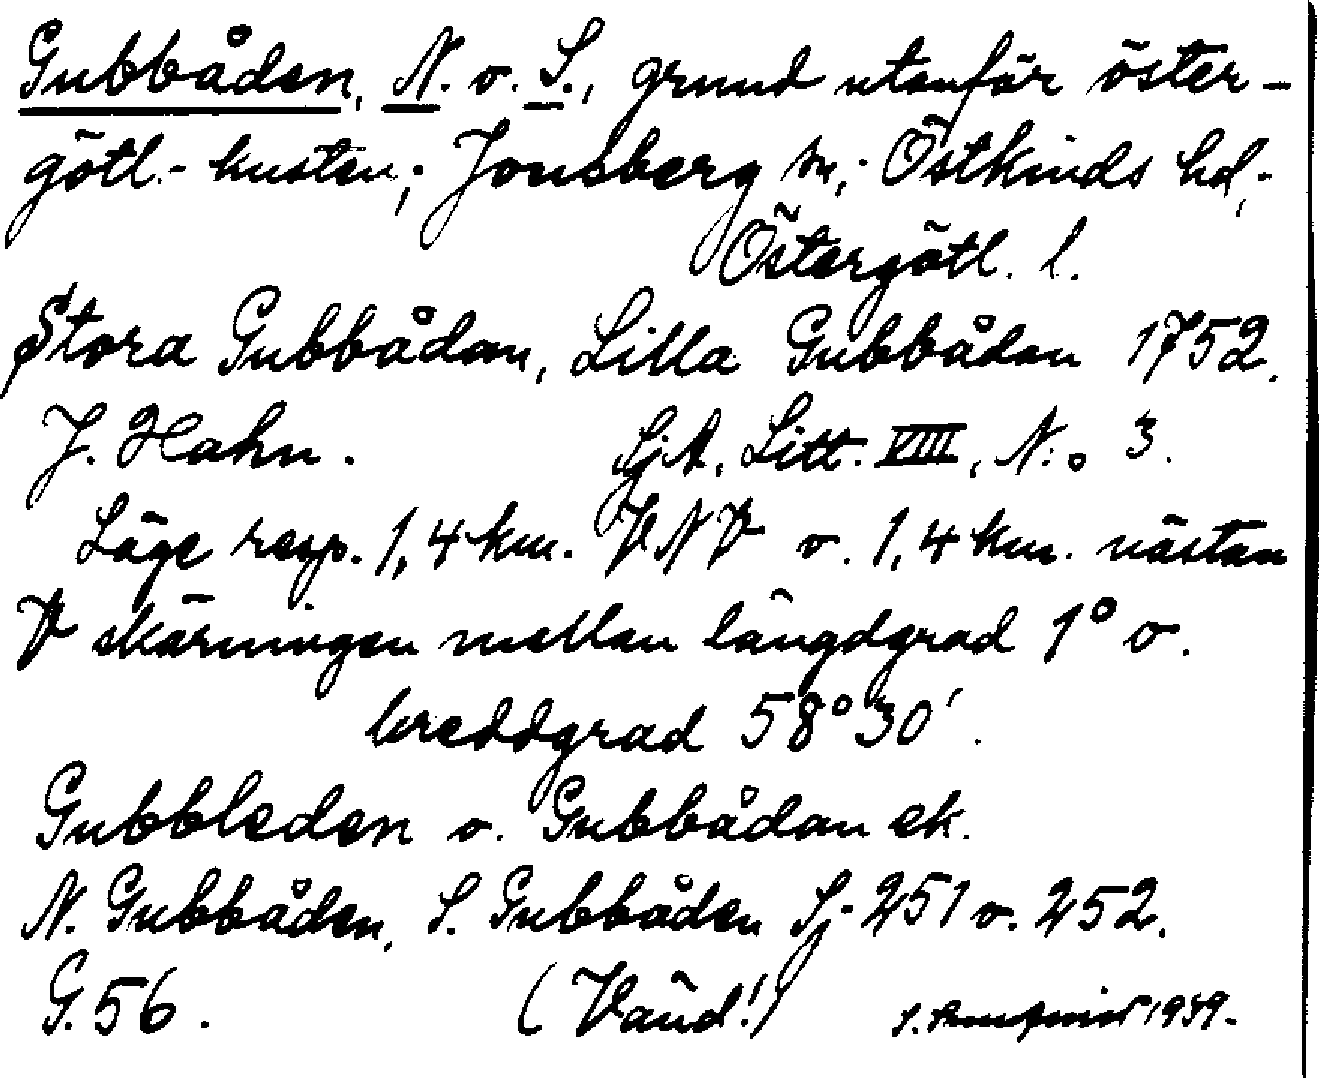 Gubbåden, N. o. S., grund utanför öster-
götl.-kusten; Jonsberg sn; Östkinds hd,
Östergötl. l.
Stora Gubbådan, Lilla Gubbådan 1752.
J. Hahn. SjA, Litt. VIII, N:o 3.
Läge resp. 1,4 km. VNV o. 1,4 km. nästan
V skärningen mellan längdgrad 1° o.
breddgrad 58° 30'.
Gubbleden o. Gubbådan ek.
N. Gubbåden, S. Gubbåden Sj. 251 o. 252.
G. 56. (Vänd!) 1939.